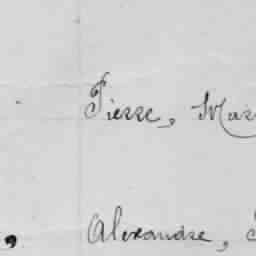 Pierre, Mar
Alexandre,